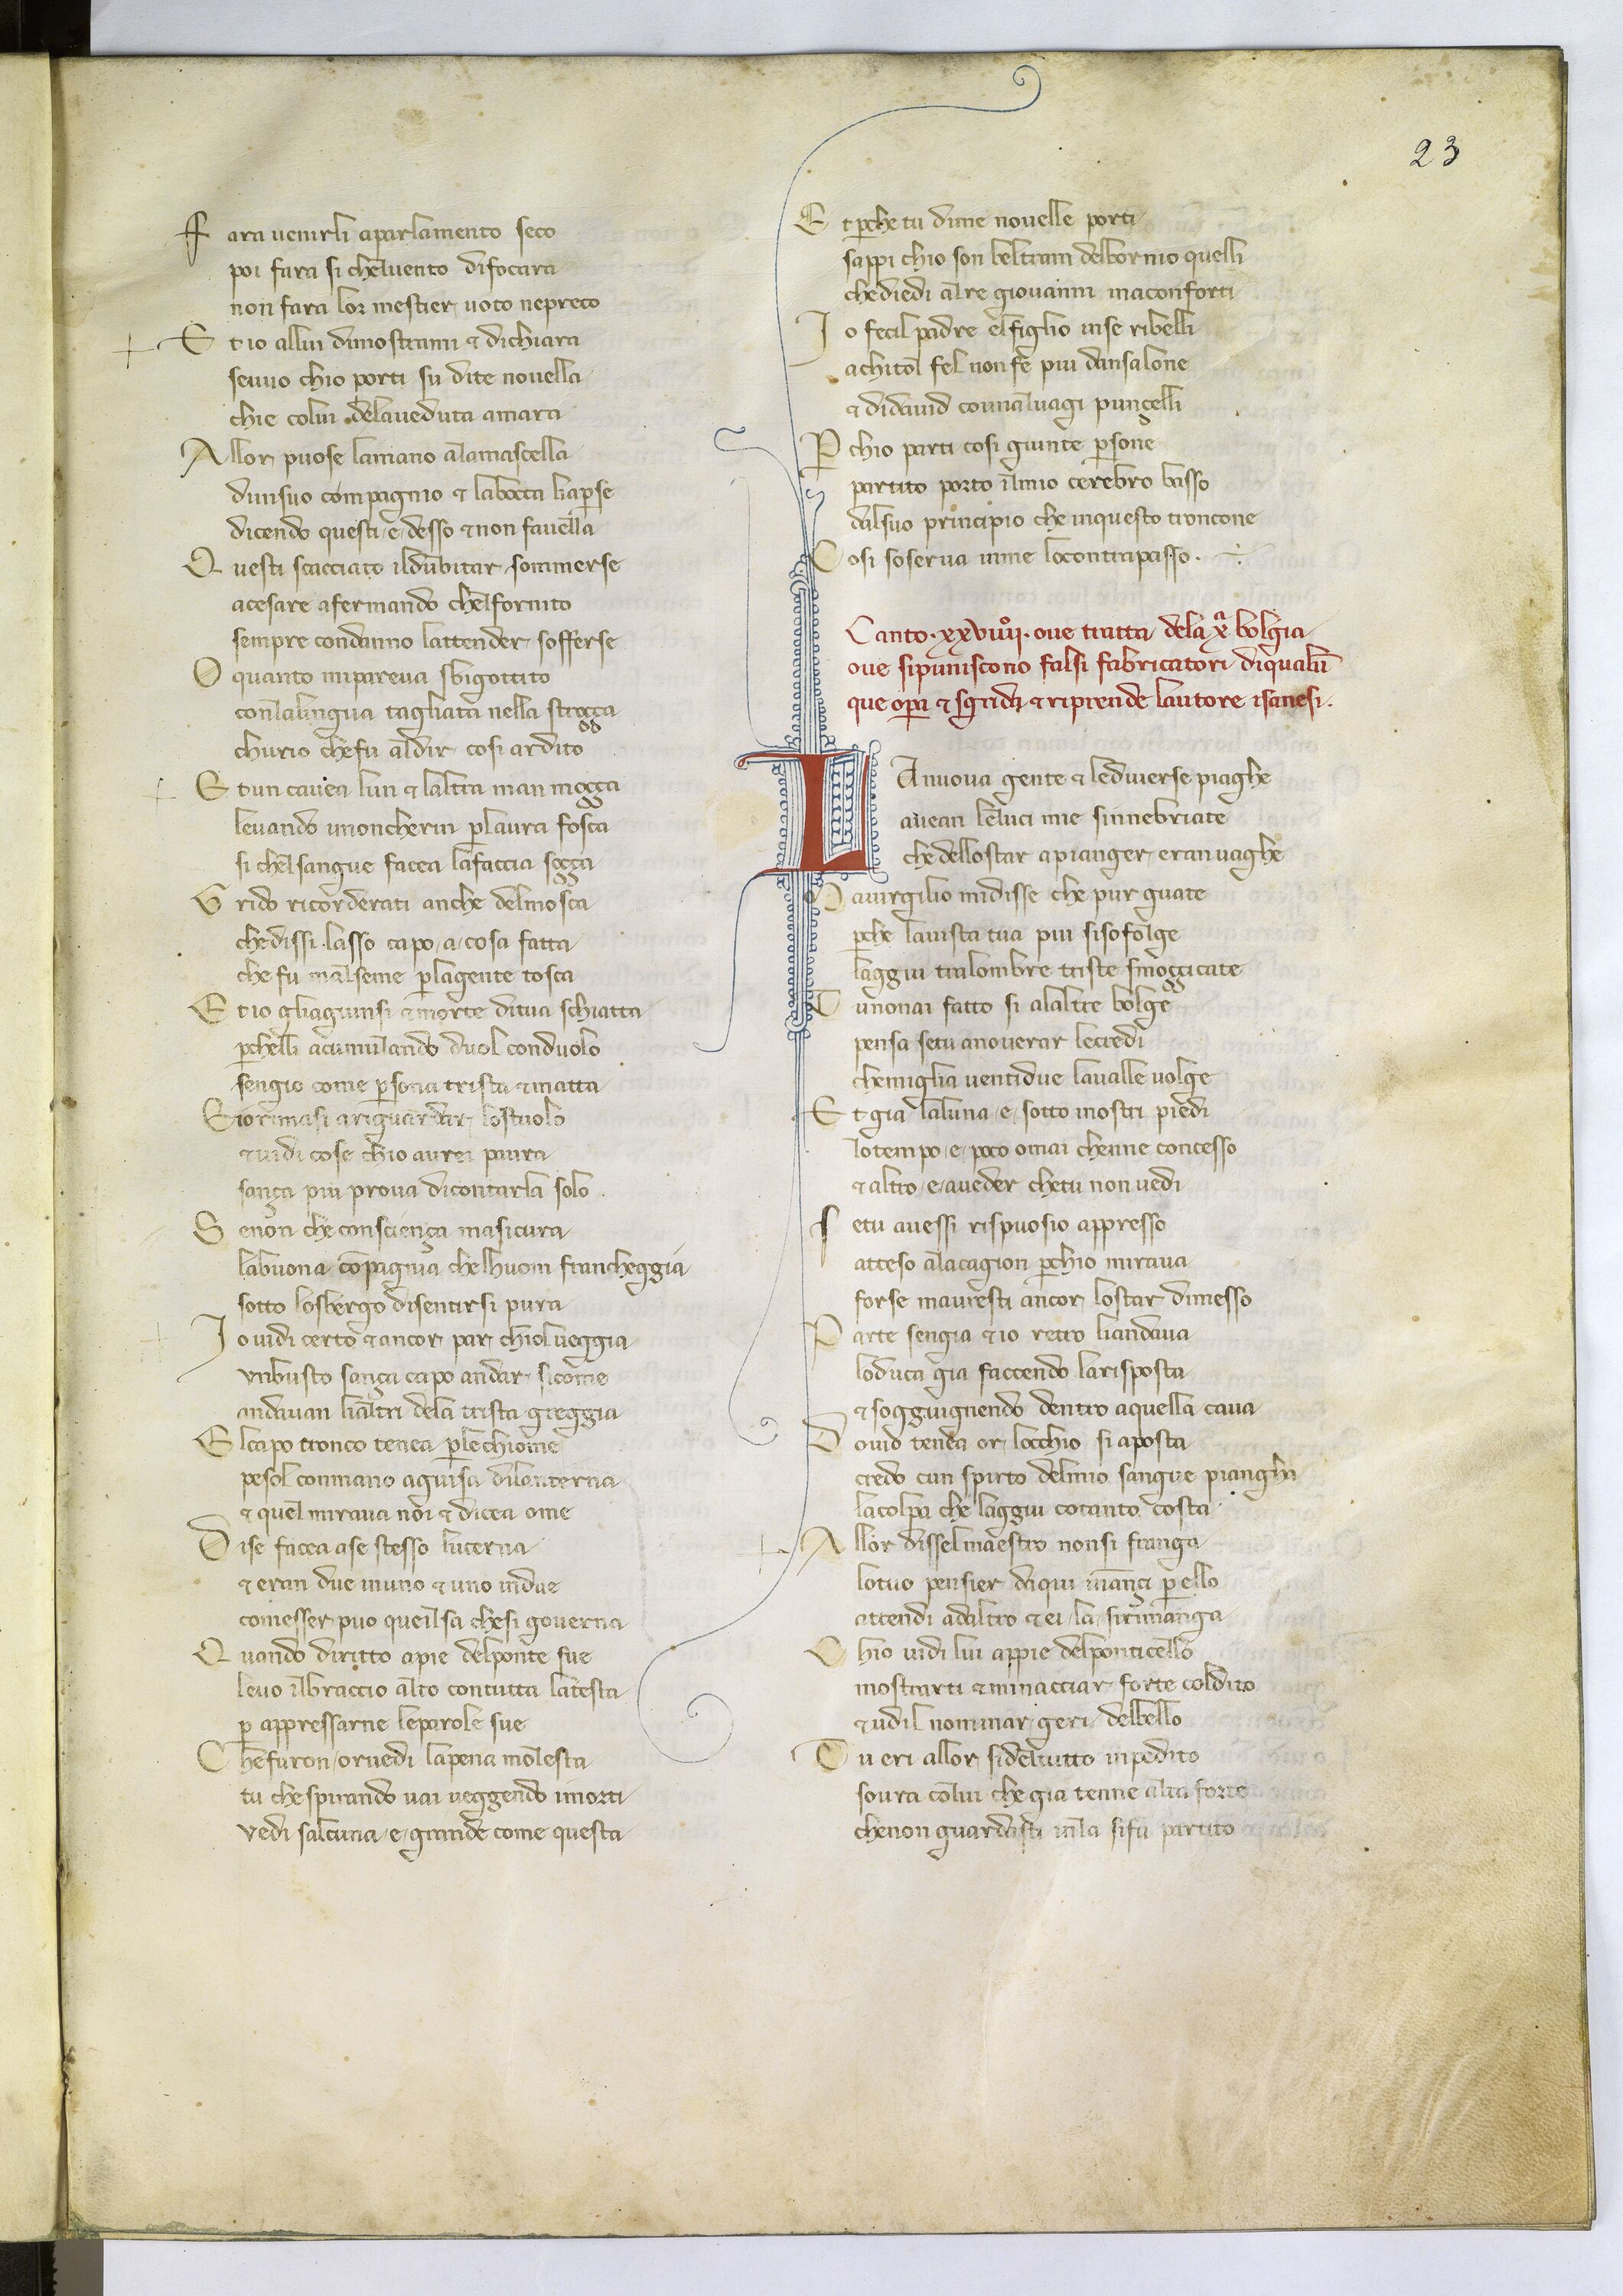 23
Fara uenirli aparlamento seco
poi fara si cheluento difocara
non fara lor mestier uoto nepreco
Et io allui dimostrami & dichiara
seuuo chio porti su dite nouella
chie colui delaueduta amara
Allor puose lamano alamascella
dunsuo compagnio & labocca liaperse
dicendo questi e desso & non fauella
Questi scacciato ildubitar sommerse
acesare afermando chelfornito
sempre condanno lattender sofferse
O quanto mipareua sbigottito
conlalingua tagliata nella stroçça
churio chefu aldir cosi ardito
Et un cauea lun & laltra man moçça
leuando imoncherin plaura fosca
si chelsangue facea lafaccia soçça
Grido ricorderati anche delmosca
chedissi lasso capo a cosa fatta
che fu malseme plagente tosca
Et io gliagiunsi & morte ditua schiatta
pchelli acumulando duol conduolo
sengio come psona trista & matta
Eiorimasi ariguardar lostuolo
& uidi cose chio aurei paura
sança piu proua dicontarla solo
Senon che consciença masicura
labuona cōpagnia chelhuom francheggia
sotto losbergo disentirsi pura
Io uidi certo & ancor par chiolueggia
vnbusto sança capo andar sicome
andauan lialtri dela trista greggia
Elcapo tronco tenea plechiome
pesol conmano aguisa dilanterna
& quel miraua noi & dicea ome
Dise facea ase stesso lucerna
& eran due inuno & uno indue
comesser puo queilsa chesi gouerna
Quando diritto apie delponte fue
leuo ilbraccio alto contutta latesta
p appressarne leparole sue
Chefuron oruedi lapena molesta
tu chespirando uai ueggendo imorti
vedi salcuna e grande come questa
Et pche tu dime nouelle porti
sappi chio son beltram delbornio quelli
chediedi alre giouanni maconforti
Io fecil padre elfiglio inse ribelli
achitol fel nonfe piu dansalone
& didauid conmaluagi puncelli
Pchio parti cosi giunte psone
partito porto ilmio cerebro lasso
dalsuo principio che inquesto troncone
Cosi soserua inme locontrapasso.
Canto . xxviiij . oue tratta dela xª bolgia
oue sipuniscono falsi fabricatori diqualū
que opa & sgrida & riprende lautore isanesi.
LAnuoua gente & lediuerse piaghe
auean leluci mie sinnebriate
chedellostar apianger eran uaghe
Mauirgilio midisse che pur guate
pche lauista tua pur sisofolge
laggiu tralombre triste smoççicate
Tunonai fatto si alaltre bolge
pensa setu anouerar lecredi
chemiglia uentidue laualle uolge
Et gia laluna e sotto inostri piedi
lotempo e poco omai chenne concesso
& altro e aueder chetu non uedi
Setu auessi rispuosio appresso
atteso alacagion pchio miraua
forse mauresti ancor lostar dimesso
Parte sengia & io retro liandaua
loduca gia faccendo larisposta
& soggiugnendo dentro aquella caua
Douio tenea or locchio si aposta
credo cun spirto delmio sangue piangha
lacolpa che laggiu cotanto costa
Allor disselmaestro nonsi franga
lotuo pensier daqui inançi p ello
attendi adaltro & ei la sirimanga
Chio uidi lui appie delponticello
mostrarti & minacciar forte coldito
& udil nominar geri delbello
Tu eri allor sideltutto inpedito
soura colui che gia tenne alta forte
chenon guardasti inla sifu partito